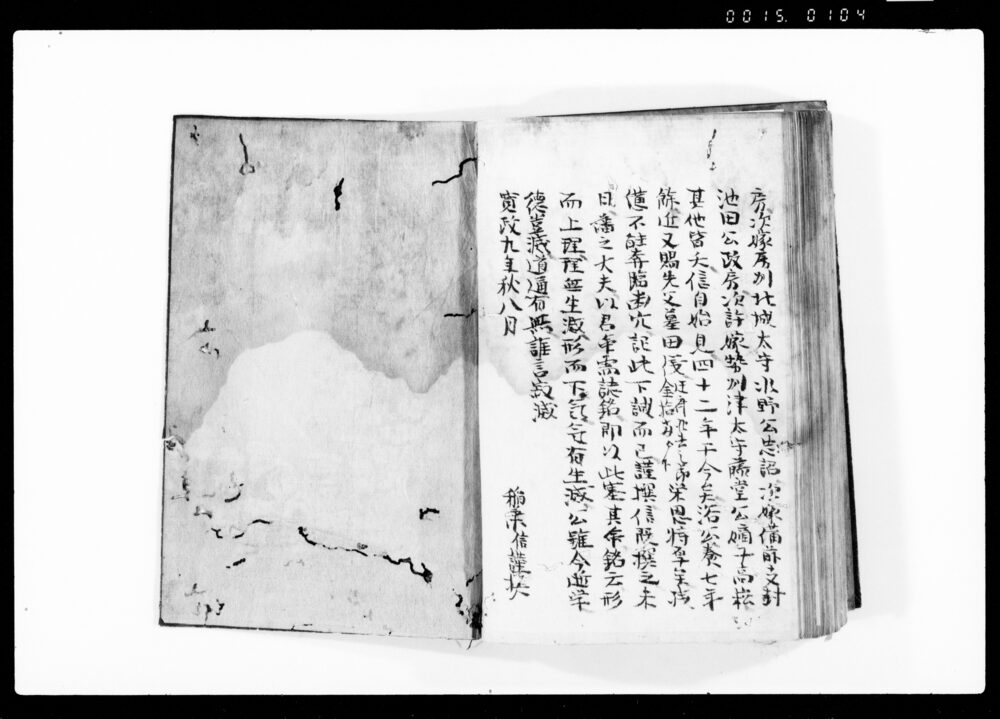 0015. 0104
房次嫁房州北城太守水野公忠韶次嫁備前支封
池田公政房次許嫁勢州津太守藤堂公嫡子高崧
其他皆夭信自始見四十二年于今矣浴公養七年
餘近又賜先父墓田
僕不能奔臨幽穴記此下誠而已謹撰信既撰之未
日藩之大夫以君命需誌銘即以此塞其命銘云形
而上理理無生滅形而下氣氣有生滅公雖今逝学
德豈滅道通有無誰言寂滅
寛政九年秋八月
稲葉信謹撰